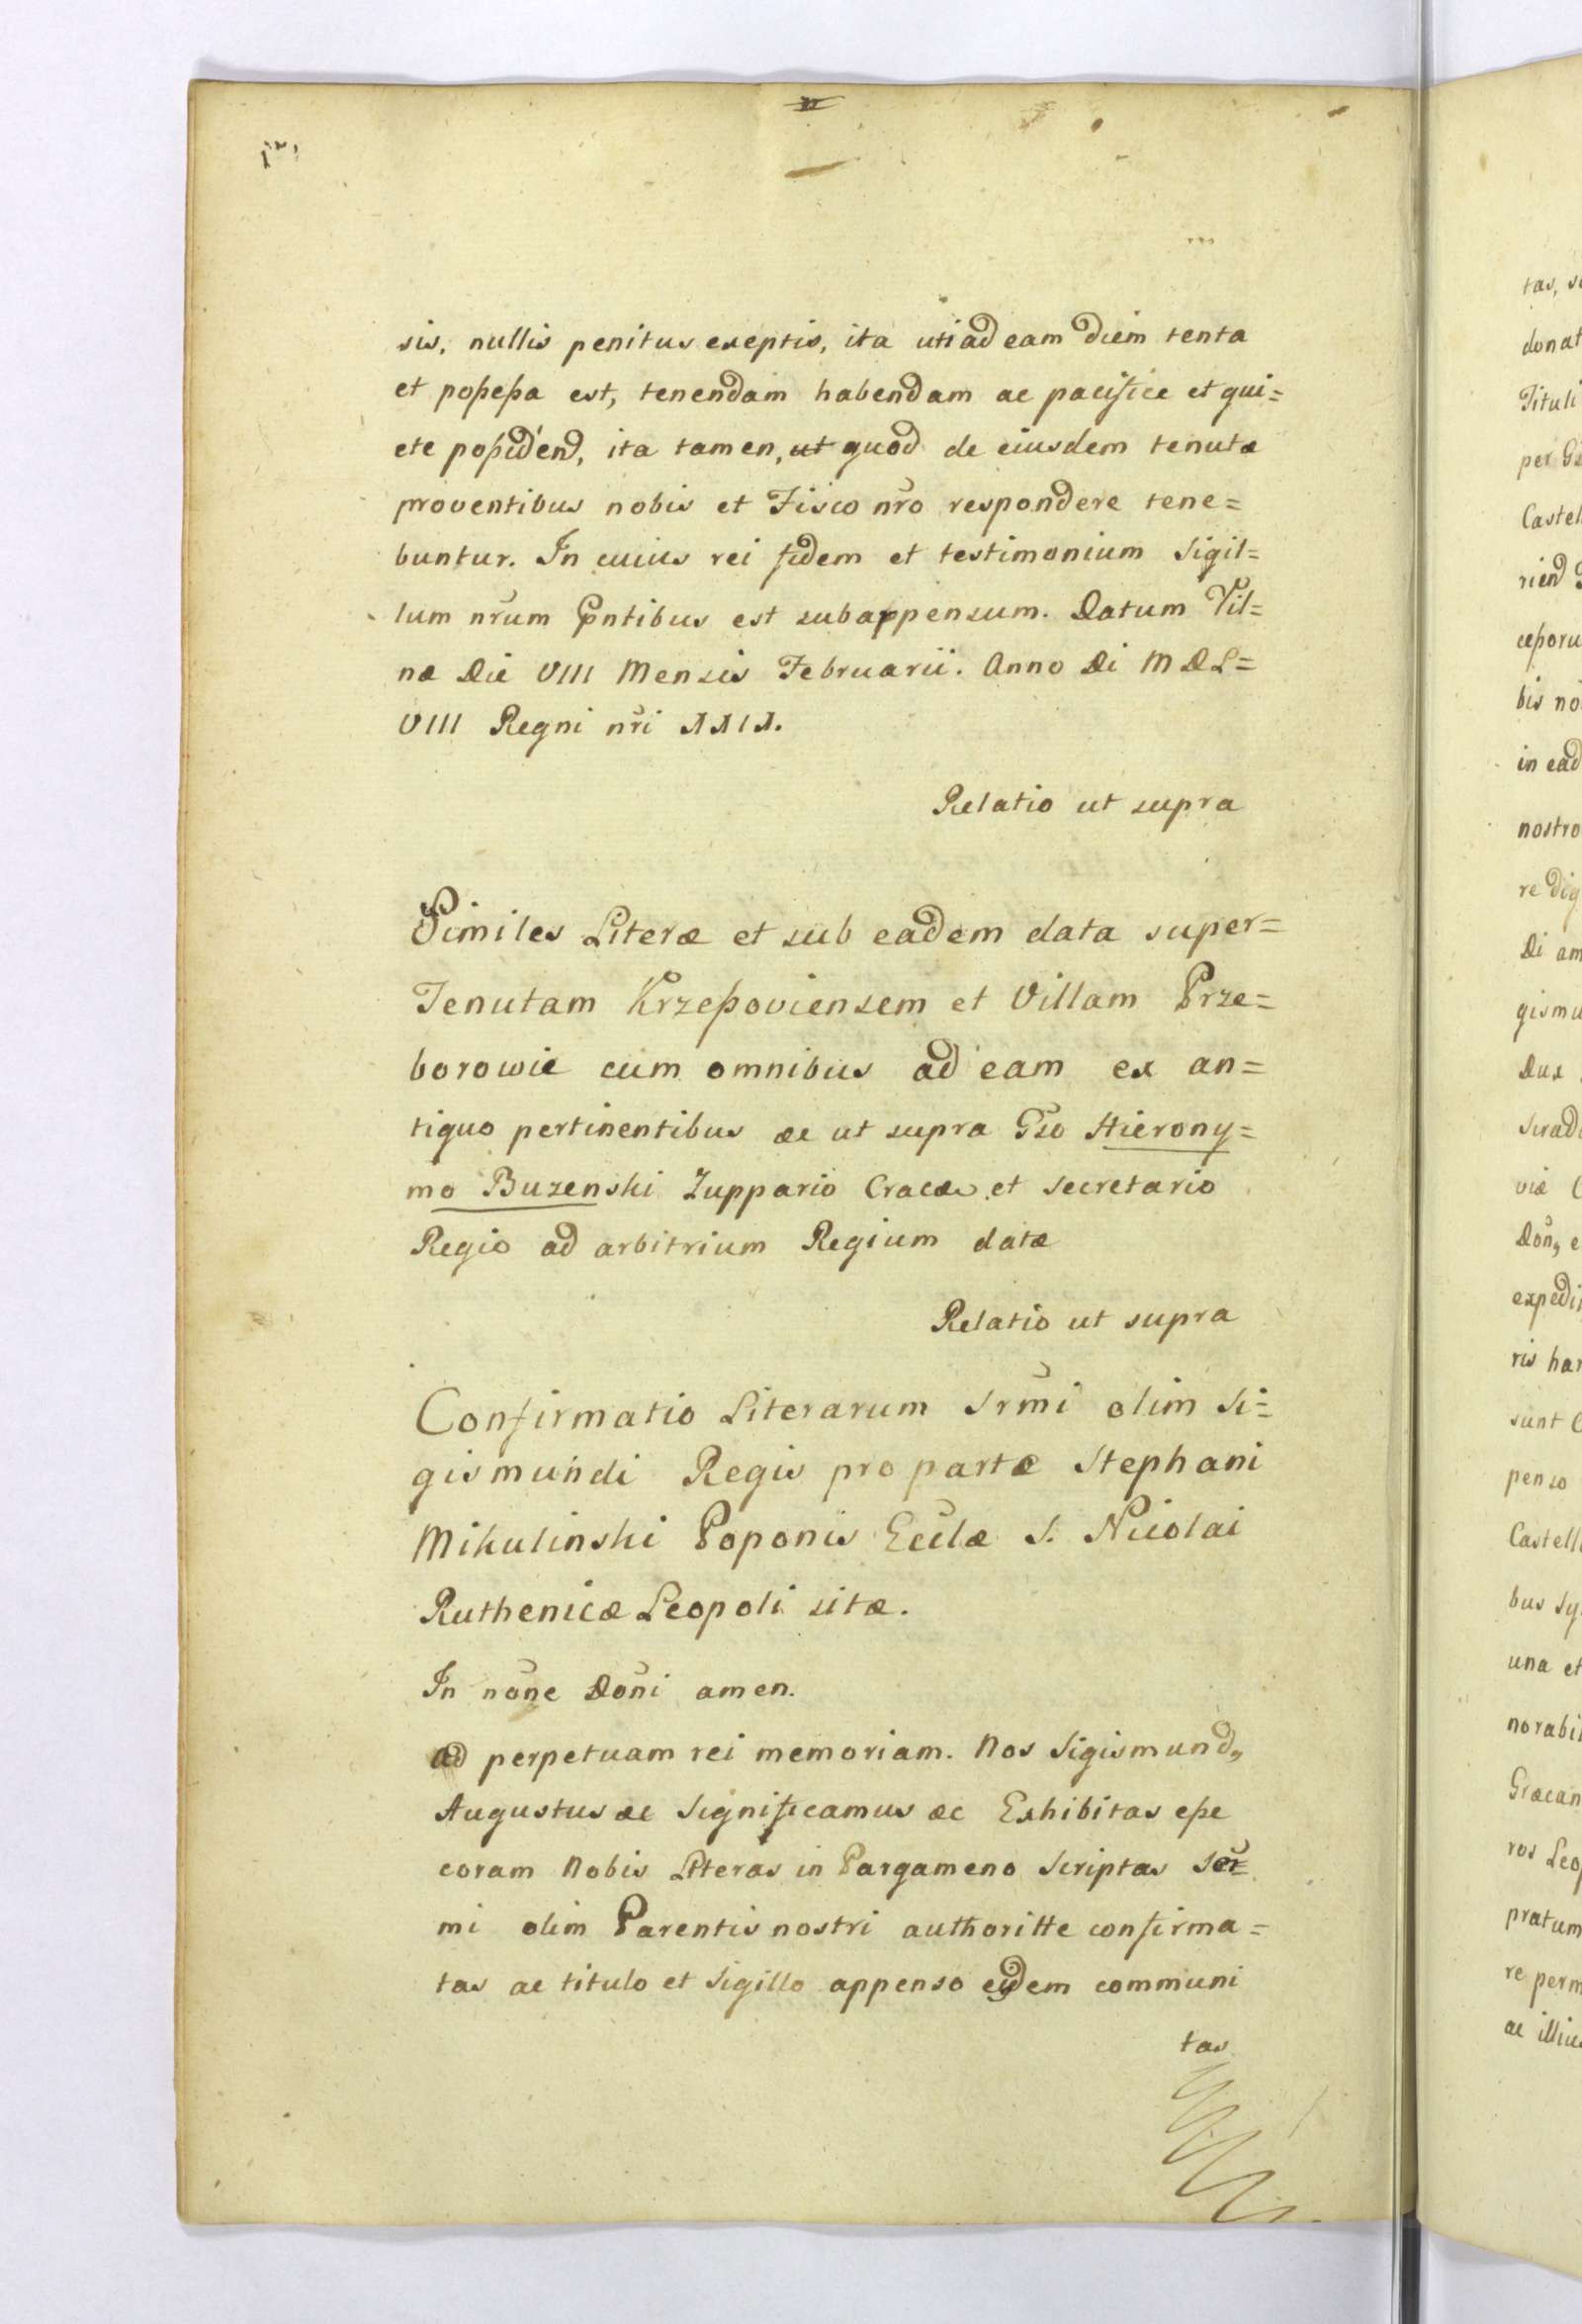 sis, nullis penitus exeptis, ita uti ad eam diem tenta
et poßeßa est, tenendam habendam ac pacifice et qui=
ete poßidend, ita tamen, ut quod de eiusdem tenutæ
proventibus nobis et Fisco nr̃o respondere tene=
buntur. In cuius rei fidem et testimonium Sigil=
lum nr̃um Pñtibus est subappensum. Datum Vil=
næ Die VIII Mensis Februarii. Anno Di MDL=
VIII Regni nr̃i XXIX.
Relatio ut supra
Similes Literæ et sub eadem data super=
Tenutam Krzeßoviensem et Villam Prze=
borowie cum omnibus ad eam ex an=
tiquo pertinentibus ac ut supra Gso Hierony=
mo Buzenski Zuppario Cracae et Secretario
Regio ad arbitrium Regium datæ
Relatio ut supra
Confirmatio Literarum Srm̃i olim Si=
gismundi Regis pro partæ Stephani
Mikulinski Poponis Ecc̃læ S. Nicolai
Ruthenicæ Leopoli sitæ.
In nõne Dõni amen.
ad perpetuam rei memoriam. Nos Sigismund,
Augustus ac Significamus ac Exhibitas eße
coram Nobis Literas in Pargameno Scriptas Ser=
mi olim Parentis nostri authoritte confirma=
tas ac titulo et Sigillo appenso eydem communi
tas
tas, s
donat
Tituli
per Gs
Castel
riend
ceßoru
bis no
in ead
nostro
re dig
Di am
gismu
Dux
Sirad
viæ C
Dõn, e
expedi
ris har
sunt C
penso
Castell
bus Sy
una et
norabi
Græcan
ros Leo
pratum
re perm
ac illiu